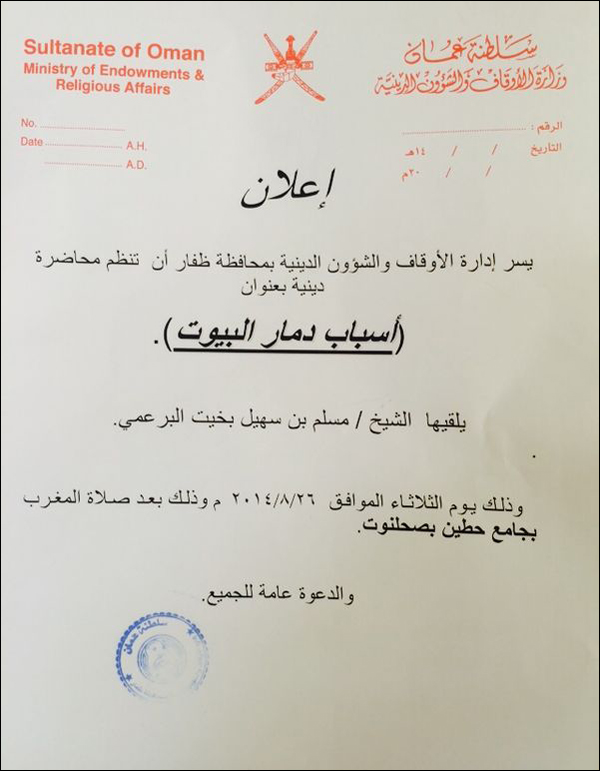 Sultanate of Oman
Ministry of Endowments &
Religious Affairs
سلطنة عمان
وزارة الأوقاف والشؤون الدينية
No. ........................
Date ...................... A.H.
...................... A.D.
الرقم : ..............................
التاريخ / / ١٤هـ
/ / ٢٠م
إعلان
يسر إدارة الأوقاف والشؤون الدينية بمحافظة ظفار أن تنظم محاضرة
دينية بعنوان
(أسباب دمار البيوت).
يلقيها الشيخ / مسلم بن سهيل بخيت البرعمي.
.
وذلك يوم الثلاثاء الموافق ٢٠١٤/٨/٢٦ م وذلك بعد صلاة المغرب
بجامع حطين بصحلنوت.
والدعوة عامة للجميع.
سلطنة عمان